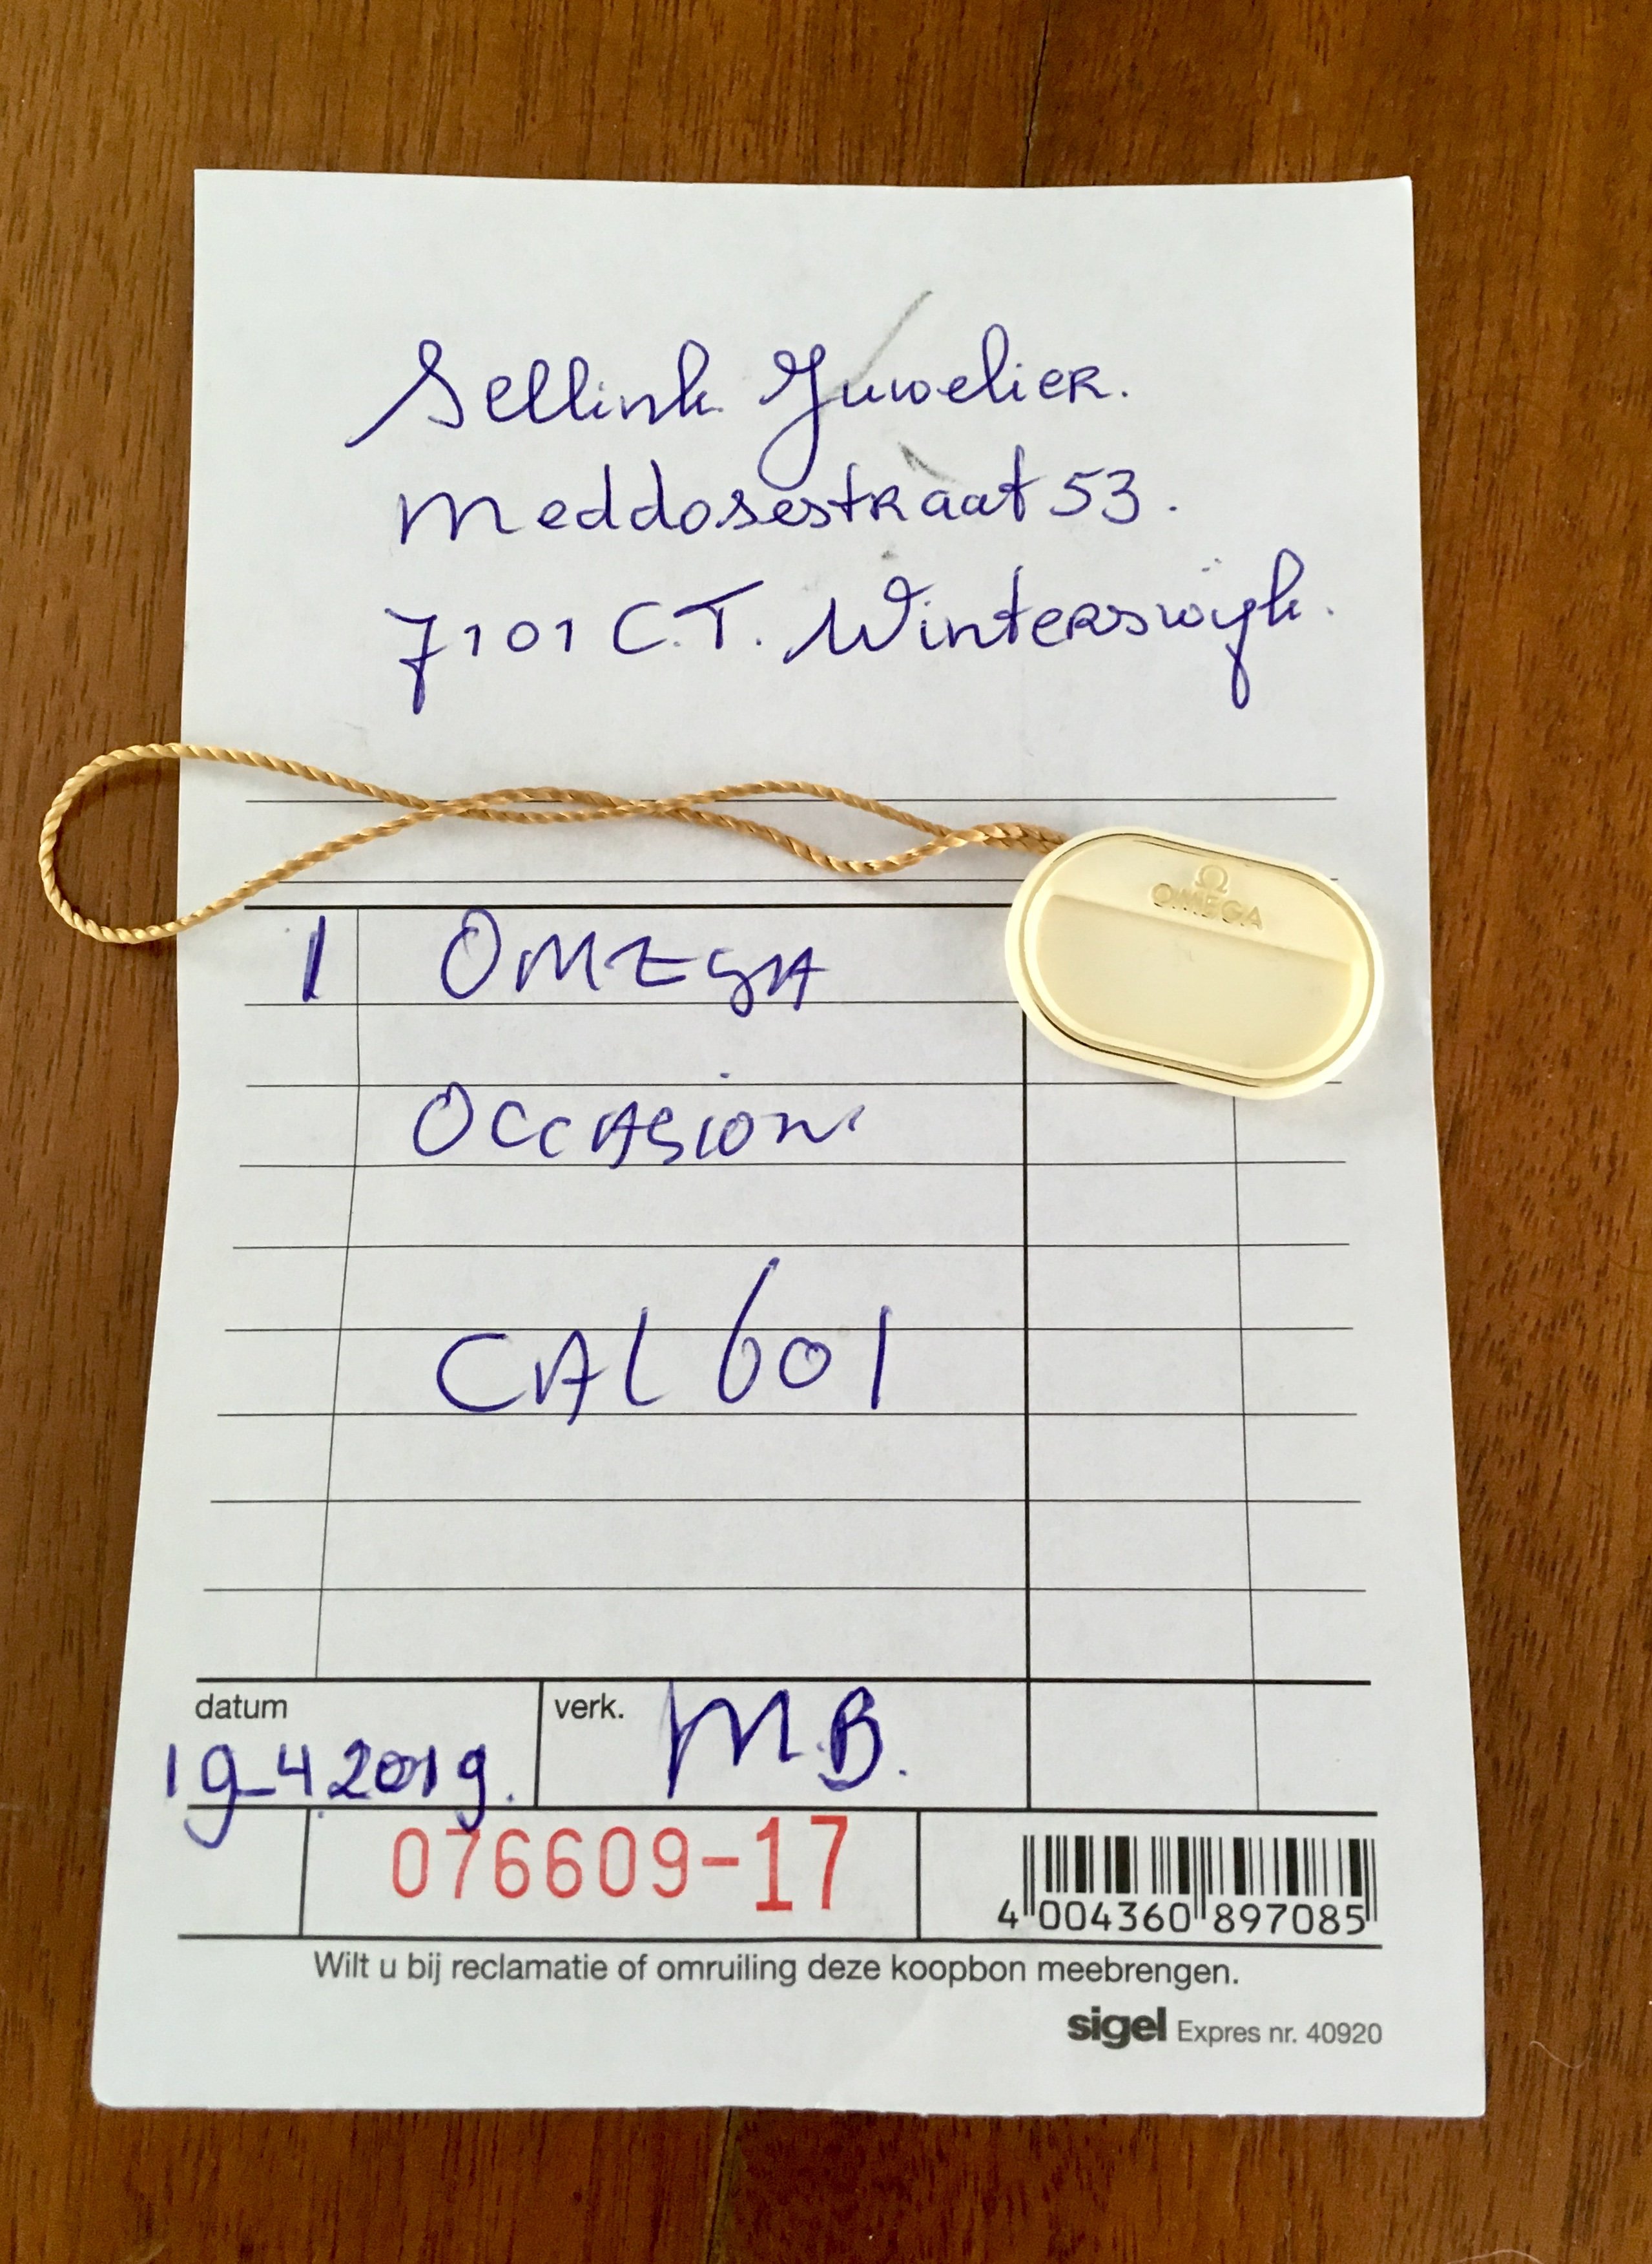 Sellink Juwelier.
Meddosestraat 53.
7101 C.T. Winterswijk.
Ω
OMEGA
1 OMEGA
OCCASION
CAL 601
datum
19-4 2019.
verk.
M.B.
076609-17
4 004360 897085
Wilt u bij reclamatie of omruiling deze koopbon meebrengen.
sigel Expres nr. 40920